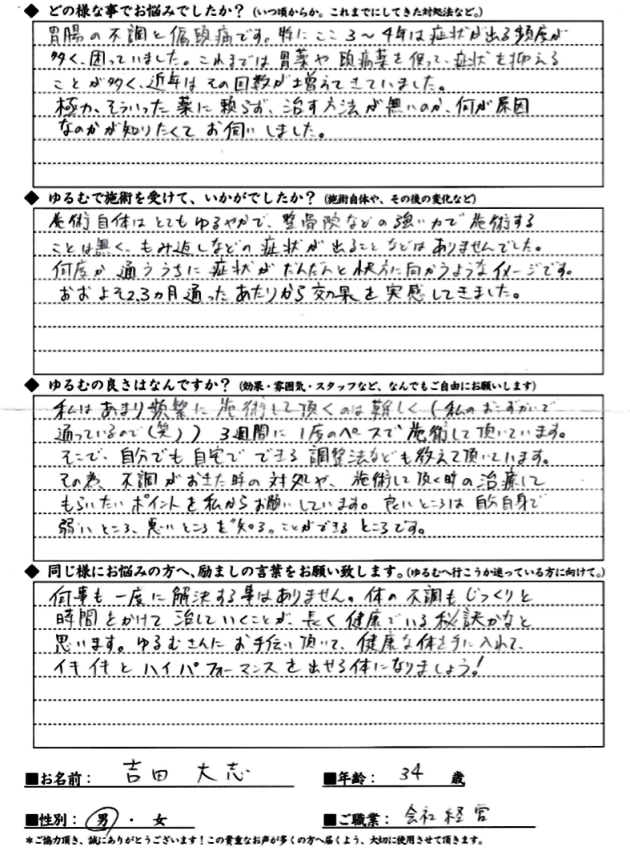 ◆ どの様な事でお悩みでしたか？（いつ頃からか。これまでにしてきた対処法など。）
胃腸の不調と偏頭痛です。特にここ3〜4年は症状が出る頻度が
多く、困っていました。これまでは胃薬や頭痛薬を使って、症状を抑える
ことが多く、近年はその回数が増えてきていました。
極力、そういった薬に頼らず、治す方法が無いのか、何が原因
なのかが知りたくてお伺いしました。
◆ ゆるむで施術を受けて、いかがでしたか？（施術自体や、その後の変化など）
施術自体はとてもゆるやかで、整骨院などの強い力で施術する
ことは無く、もみ返しなどの症状が出ることなどはありませんでした。
何度か通ううちに症状がだんだんと快方に向かうようなイメージです。
おおよそ2.3ヵ月通ったあたりから効果を実感してきました。
◆ ゆるむの良さはなんですか？（効果・雰囲気・スタッフなど、なんでもご自由にお願いします）
私はあまり頻繁に施術して頂くのは難しく（私のおこずかいで
通っているので（笑））3週間に1度のペースで施術して頂いています。
そこで、自分でも自宅でできる調整法なども教えて頂いています。
その為、不調がおきた時の対処や、施術して頂く時の治療して
もらいたいポイントを私からお願いしています。良いところは自分自身で
弱いところ、悪いところを"知る"ことができるところです。
◆ 同じ様にお悩みの方へ、励ましの言葉をお願い致します。（ゆるむへ行こうか迷っている方に向けて。）
何事も一度に解決する事はありません。体の不調もじっくりと
時間をかけて治していくことが、長く健康でいる秘訣かなと
思います。ゆるむさんにお手伝い頂いて、健康な体を手に入れて、
イキイキとハイパフォーマンスを出せる体になりましょう！
■お名前： 吉田 大志 ■年齢： 34 歳
■性別： 男 ・ 女 ■ご職業： 会社経営
＊ご協力頂き、誠にありがとうございます！この貴重なお声が多くの方へ届くよう、大切に使用させて頂きます。